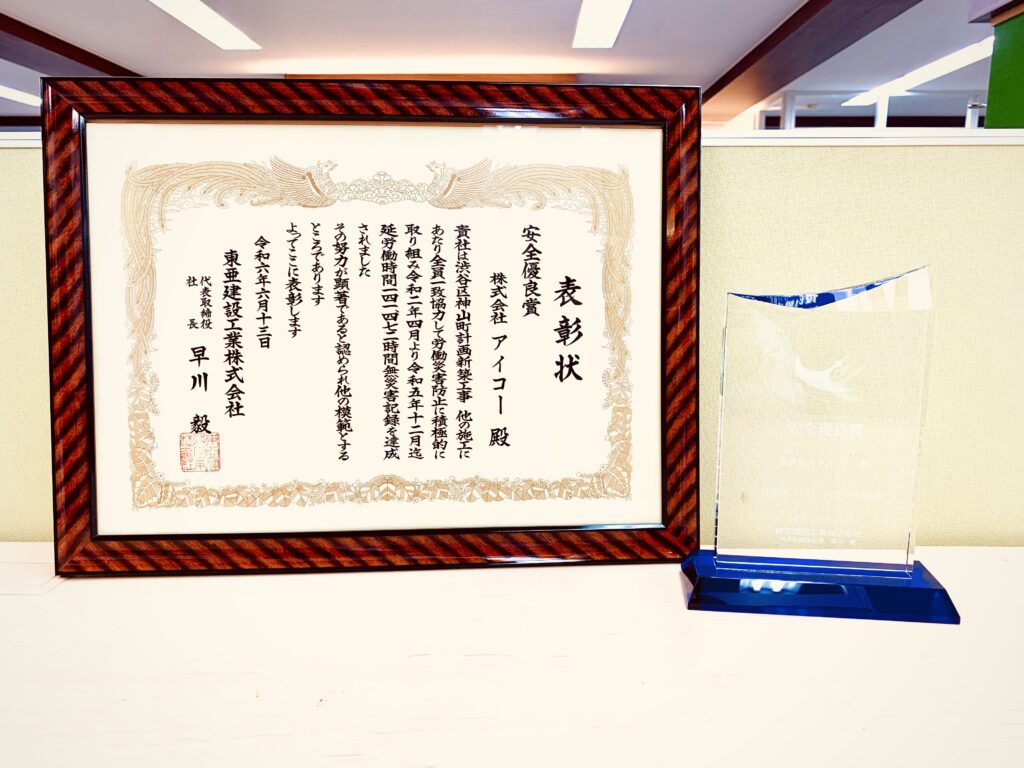 表彰状
安全優良賞
株式会社 アイコー 殿
貴社は渋谷区神山町計画新築工事 他の施工に
あたり全員一致協力して労働災害防止に積極的に
取り組み令和二年四月より令和五年十二月迄
延労働時間一四一四七二時間無災害記録を達成
されました
その努力が顕著であると認められ他の模範とする
ところであります
よってここに表彰します
令和六年六月十三日
東亜建設工業株式会社
代表取締役
社長
早川 毅
安全優良賞